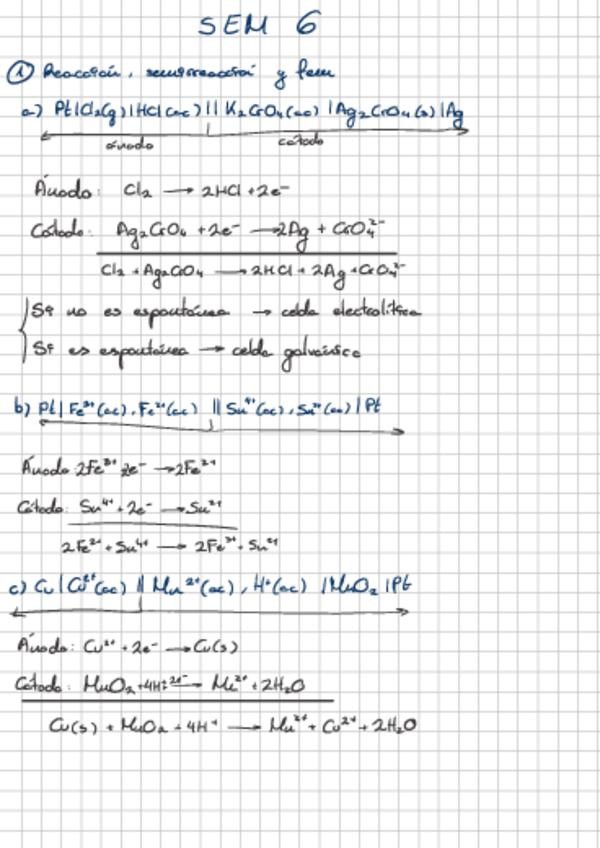 SEM 6
① Reacción, semirreacción y fem
a) Pt|Cl₂(g)|HCl(ac)||K₂CrO₄(ac)|Ag₂CrO₄(s)|Ag
ánodo cátodo
Ánodo: Cl₂ → 2HCl + 2e⁻
Cátodo: Ag₂CrO₄ + 2e⁻ → 2Ag + CrO₄²⁻
Cl₂ + Ag₂CrO₄ → 2HCl + 2Ag + CrO₄²⁻
Si no es espontánea → celda electrolítica
Si es espontánea → celda galvánica
b) Pt|Fe³⁺(ac), Fe²⁺(ac) || Sn⁴⁺(ac), Sn²⁺(ac)|Pt
Ánodo: 2Fe³⁺ 2e⁻ → 2Fe²⁺
Cátodo: Sn⁴⁺ + 2e⁻ → Sn²⁺
2Fe²⁺ + Sn⁴⁺ → 2Fe³⁺ + Sn²⁺
c) Cu|Cu²⁺(ac) || Mn²⁺(ac), H⁺(ac) |MnO₂|Pt
Ánodo: Cu²⁺ + 2e⁻ → Cu(s)
Cátodo: MnO₂ + 4H⁺ + 2e⁻ → Mn²⁺ + 2H₂O
Cu(s) + MnO₂ + 4H⁺ → Mn²⁺ + Cu²⁺ + 2H₂O